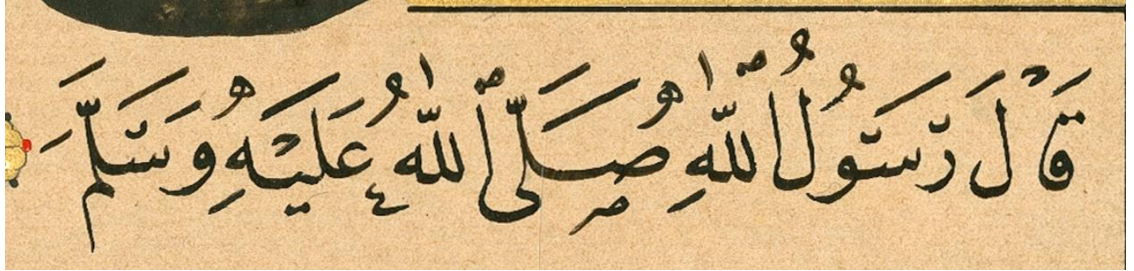 قَالَ رَسُولُ اللّٰهِ صَلَّى اللّٰهُ عَلَيْهِ وَسَلَّمَ